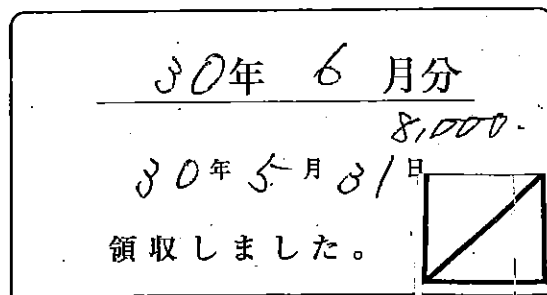 30年 6 月分
8,000.
30年 5月 31日
領収しました。